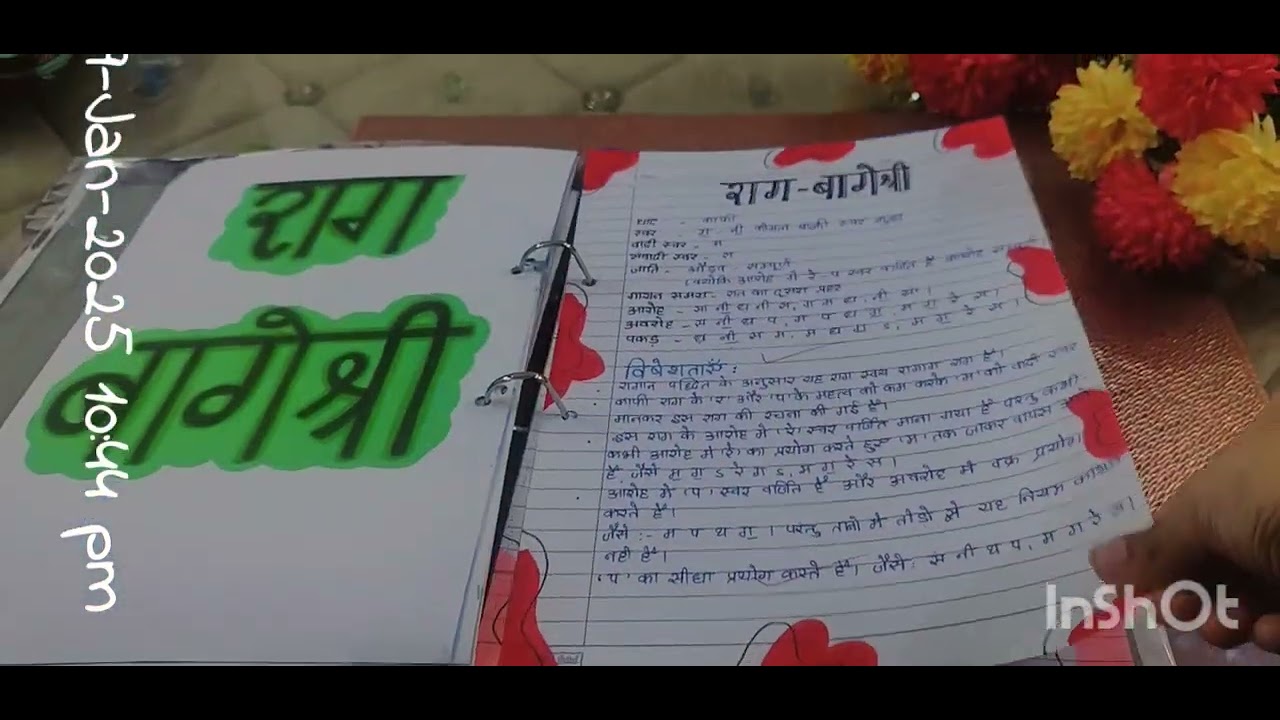 7-Jan-2025 10:44 pm
राग
बागेश्री
राग-बागेश्री
थाट - काफी
स्वर - ग नी कोमल बाकी स्वर शुद्ध
वादी स्वर - म
संवादी स्वर - स
जाति - औडव सम्पूर्ण
(क्योंकि आरोह में रे प स्वर वर्जित है
गायन समय- रात का दूसरा प्रहर
आरोह - सा नी ध नी स, ग म ध, नी सं ।
अवरोह - सं नी ध प, म प ध ग, म ग रे स ।
पकड़ - ध नी स म, म ध म ग ऽ, म ग रे स ।
विषेशताएँ :
रागान पद्धित के अनुसार यह राग स्वयं रागाग राग है।
काफी राग के 'रे' और 'प' के महत्व को कम करके 'म' को वादी स्वर
मानकर इस राग की रचना की गई है।
इस राग के आरोह में 'रे' स्वर वर्जित माना गया है परंतु कभी
कभी आरोह में (रे) का प्रयोग करते हुए 'म' तक जाकर वापस
है, जैसे म ग ऽ रे ग ऽ, म ग रे स ।
आरोह में 'प' स्वर वर्जित है और अवरोह में वक्र प्रयोग
करते हैं।
जैसे :- म प ध ग । परंतु तानो मे तोड़ो मे यह नियम
नही है।
'प' का सीधा प्रयोग करते है। जैसे: सं नी ध प, म ग रे स ।
InShOt